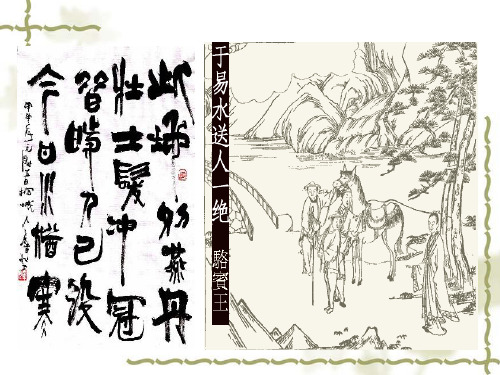 于易水送人一绝 駱賓王
此地别燕丹
壮士髮冲冠
昔時人已没
今日水猶寒